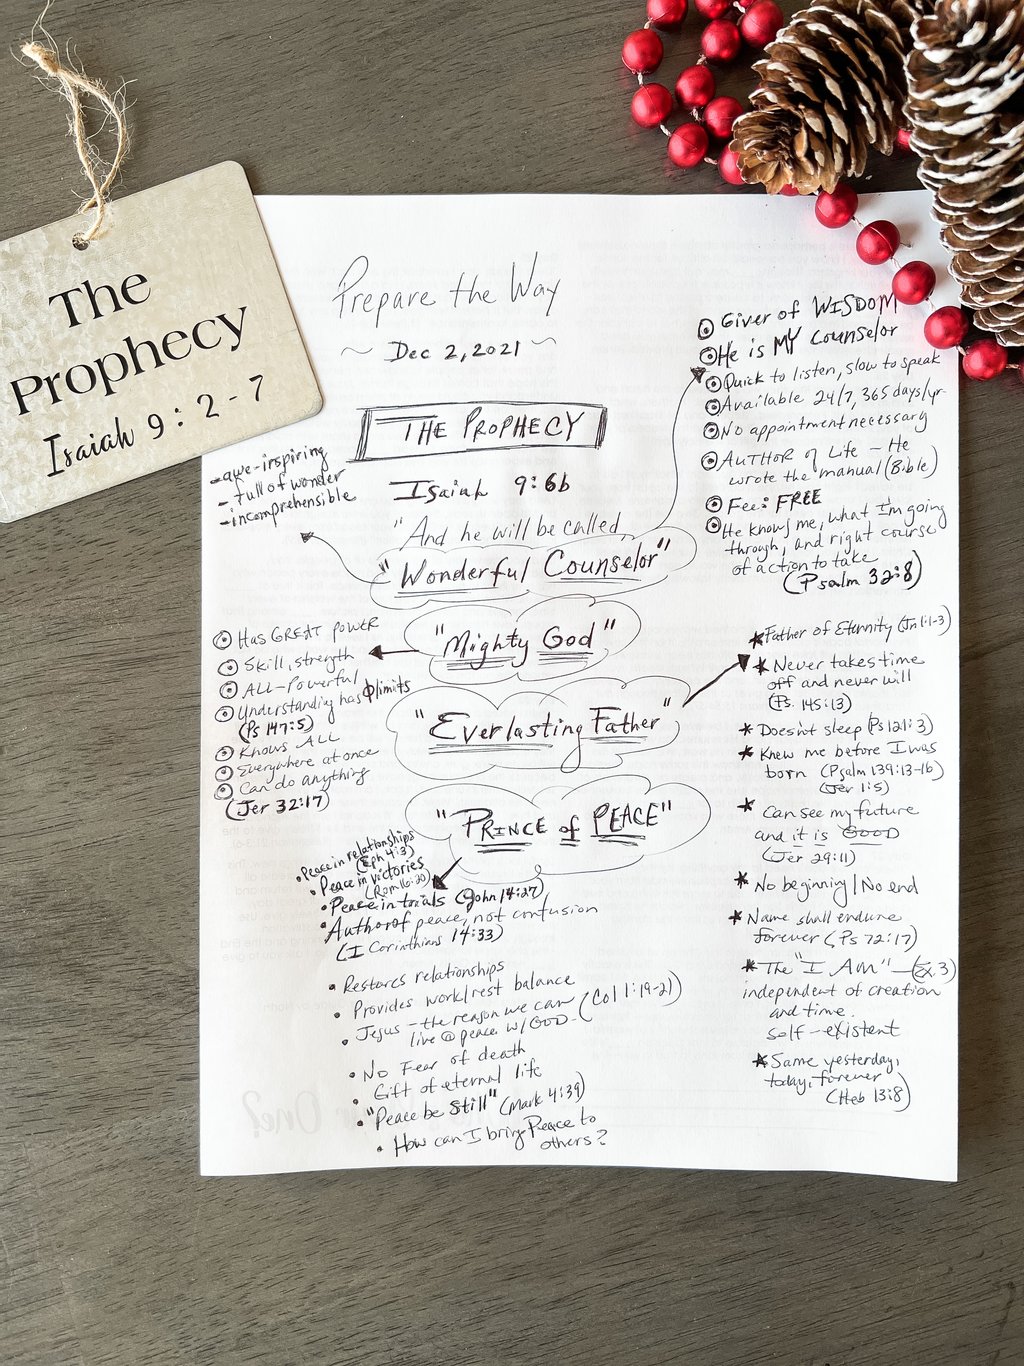 The
Prophecy
Isaiah 9:2-7
Prepare the Way
~ Dec 2, 2021 ~
THE PROPHECY
Isaiah 9:6b
"And he will be called,
"Wonderful Counselor"
- awe-inspiring
- full of wonder
- incomprehensible
Giver of WISDOM
He is MY Counselor
Quick to listen, slow to speak
Available 24/7, 365 days/yr
No appointment necessary
AUTHOR of Life - He
wrote the manual (Bible)
Fee: FREE
He knows me, what I'm going
through, and right course
of action to take
(Psalm 32:8)
"Mighty God"
Has GREAT POWER
Skill, strength
ALL-Powerful
Understanding has Ø limits
(Ps 147:5)
Knows ALL
Everywhere at once
Can do anything
(Jer 32:17)
"Everlasting Father"
Father of Eternity (Jn 1:1-3)
Never takes time
off and never will
(Ps. 145:13)
Doesn't sleep (Ps 121:3)
Knew me before I was
born (Psalm 139:13-16)
(Jer 1:5)
Can see my future
and it is GOOD
(Jer 29:11)
No beginning/No end
Name shall endure
forever (Ps 72:17)
The "I AM" - (Ex. 3)
independent of creation
and time.
self-existent
Same yesterday,
today, forever
(Heb 13:8)
"PRINCE of PEACE"
• Peace in relationships
(Eph 4:3)
• Peace in victories
(Rom 16:20)
• Peace in trials (John 14:27)
• Author of peace, not confusion
(I Corinthians 14:33)
• Restores relationships
• Provides work/rest balance
• Jesus - the reason we can
live @ peace w/ GOD - (Col 1:19-21)
• No Fear of death
• Gift of eternal life
• "Peace be Still" (Mark 4:39)
• How can I bring Peace to
others?